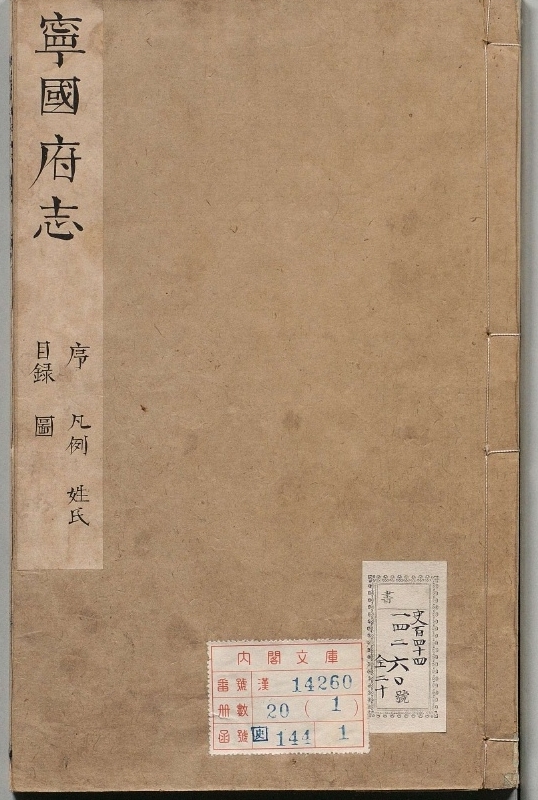 寧國府志
序 凡例 姓氏
目録 圖
書
史百四十四
一四二六〇號
全二十
内閣文庫
番號 漢 14260
册數 20 ( 1 )
函號 史 144 1